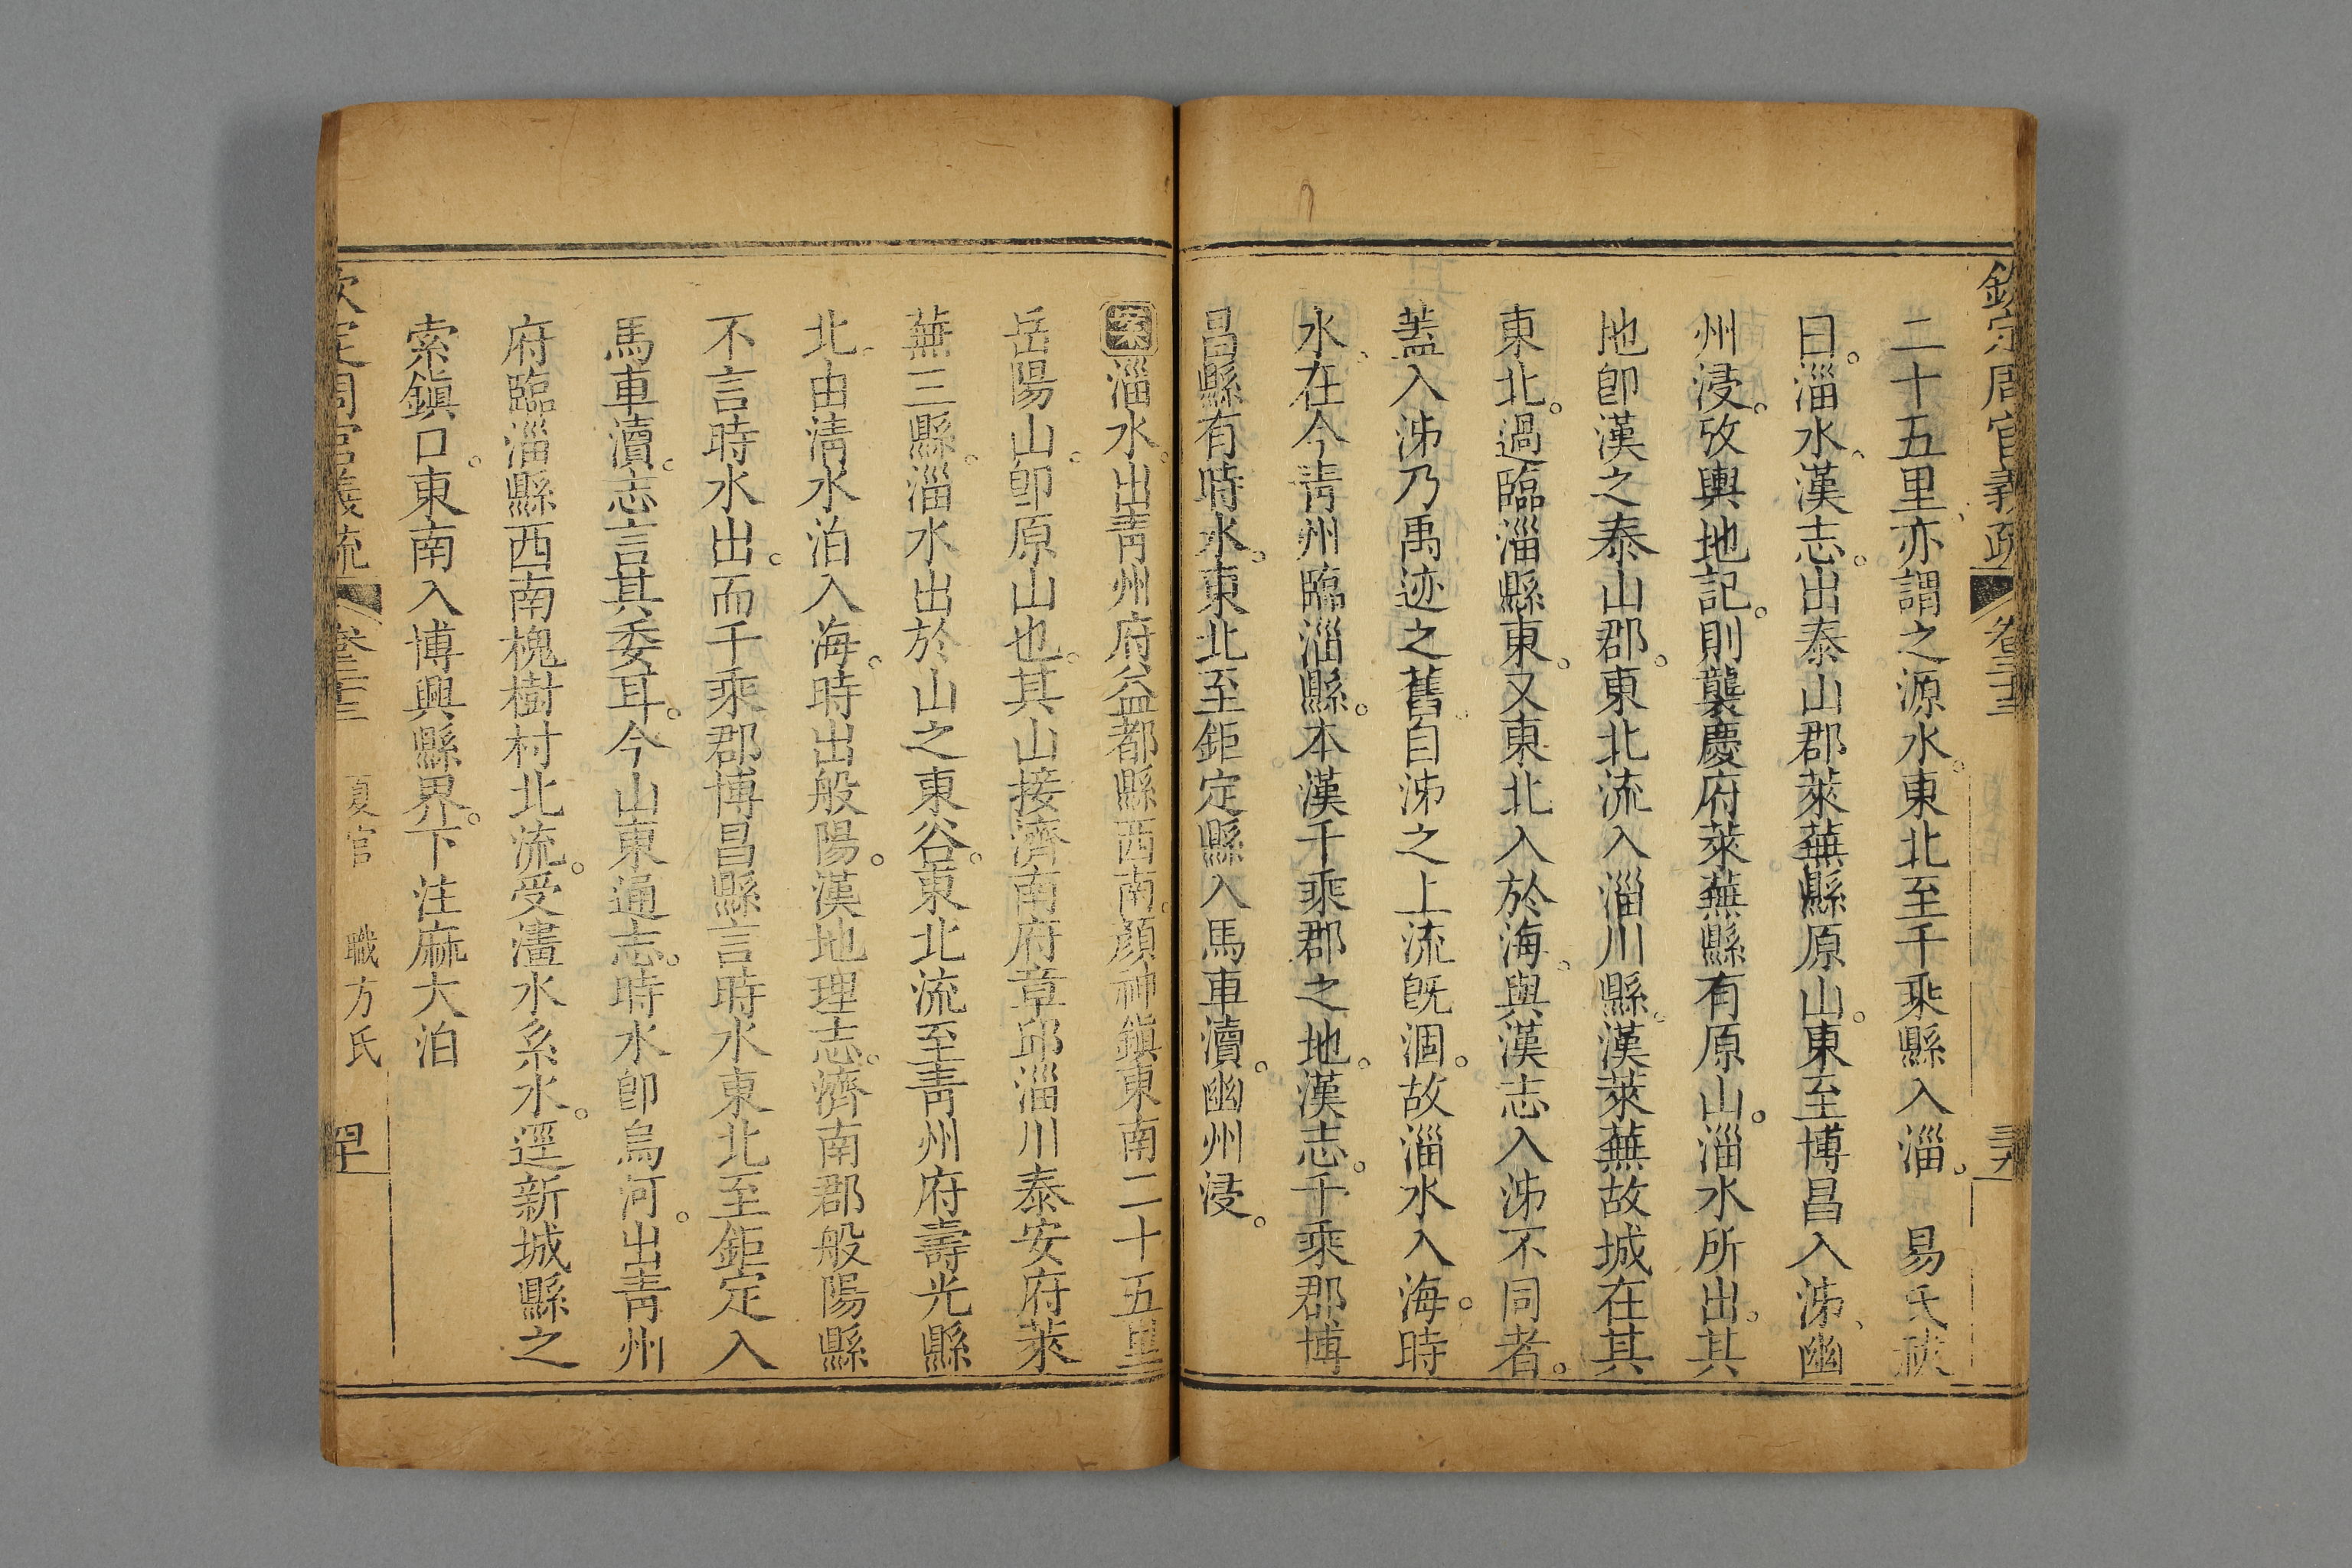 欽定周官義疏 卷三十三 三十九
二十五里、亦謂之源水。東北至千乘縣入淄。 易氏祓
曰。淄水、漢志。出泰山郡萊蕪縣原山。東至博昌入泲、幽
州浸。攷輿地記。則龔慶府萊蕪縣有原山。淄水所出。其
地卽漢之泰山郡。東北流入淄川縣。漢萊蕪故城在其
東北。過臨淄縣東。又東北入於海。與漢志入泲不同者。
蓋入泲乃禹迹之舊自泲之上流旣涸。故淄水入海。時
水、在今靑州臨淄縣。本漢千乘郡之地。漢志。千乘郡博
昌縣有時水。東北至鉅定縣入馬車瀆。幽州浸。
案淄水。出靑州府益都縣西南。顏神鎭東南二十五里
岳陽山。卽原山也。其山接濟南府章邱淄川泰安府萊
蕪三縣。淄水出於山之東谷。東北流至靑州府壽光縣
北。由淸水泊入海。時出般陽。漢地理志。濟南郡般陽縣
不言時水出。而千乘郡博昌縣言時水東北至鉅定入
馬車瀆。志言其委耳。今山東通志。時水卽烏河。出靑州
府臨淄縣西南槐樹村北流。受澅水系水。逕新城縣之
索鎭口。東南入博興縣界。下注麻大泊
欽定周官義疏 卷三十三 夏官 職方氏 四十